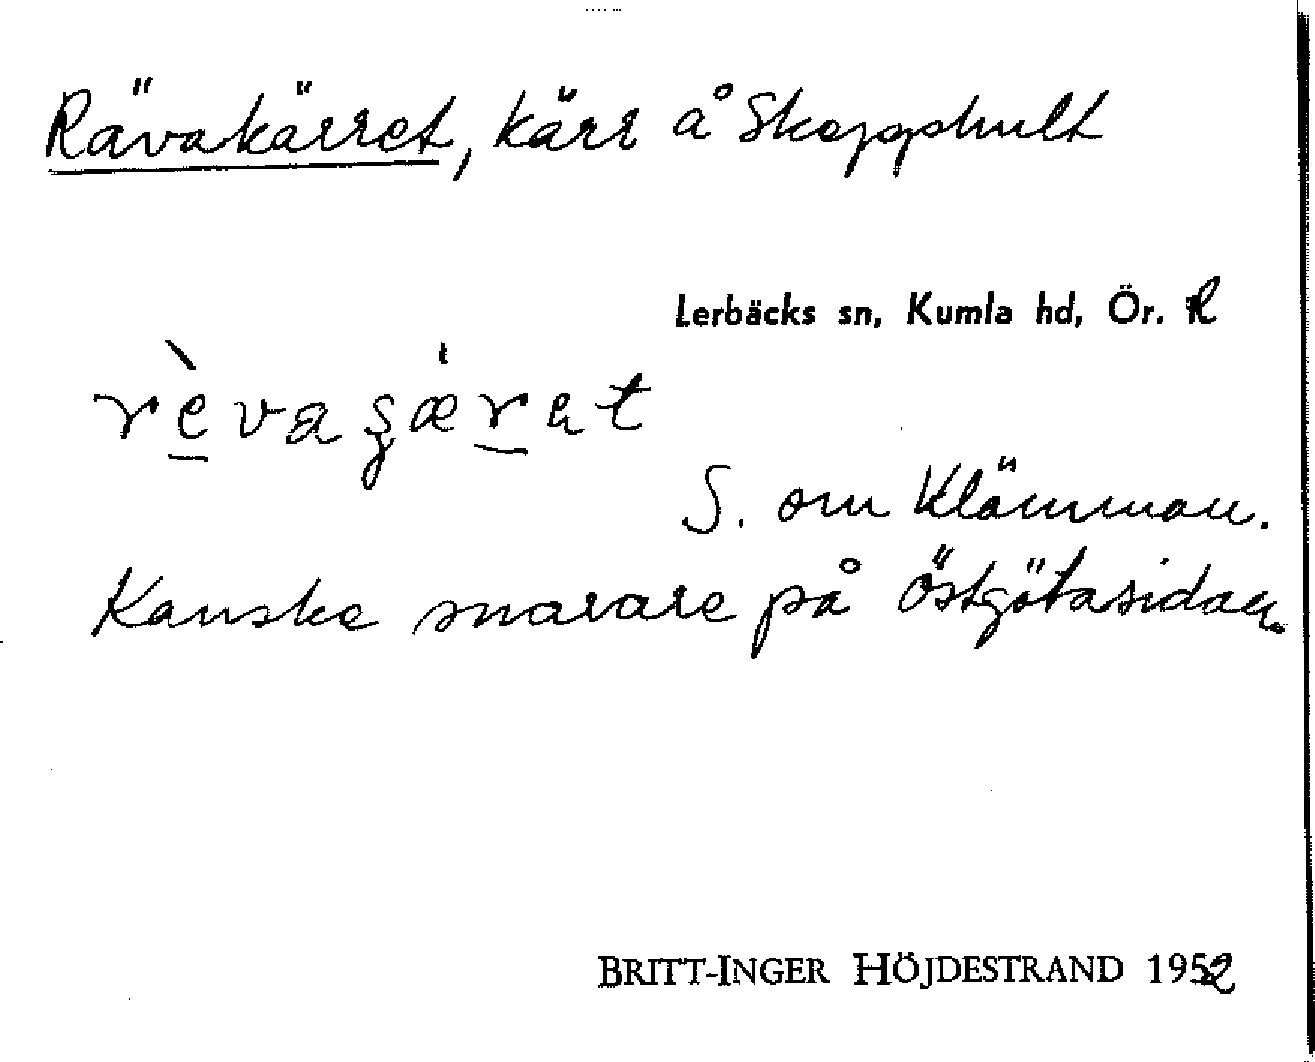 Rävakärret, kärr å Skepphult
Lerbäcks sn, Kumla hd, Ör. R
S. om Klämman.
Kanske snarare på östgötasidan.
BRITT-INGER HÖJDESTRAND 1952